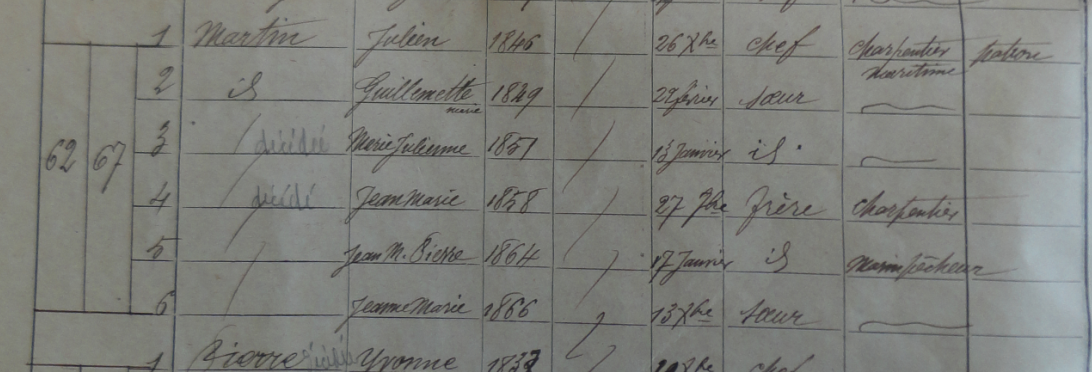 1 Martin Julien 1846 / 26 Xbre chef charpentier maritime patron
2 id Guillemette marie 1849 / 27 février sœur
3 / décédée Marie Julienne 1851 / 13 Janvier id
62 67
4 / décédé Jean Marie 1858 / 27 7bre frère charpentier
5 / Jean M. Pierre 1864 / 17 Janvier id Marin pêcheur
6 / Jeanne Marie 1866 / 13 Xbre sœur
1 Pierre Yvonne chef